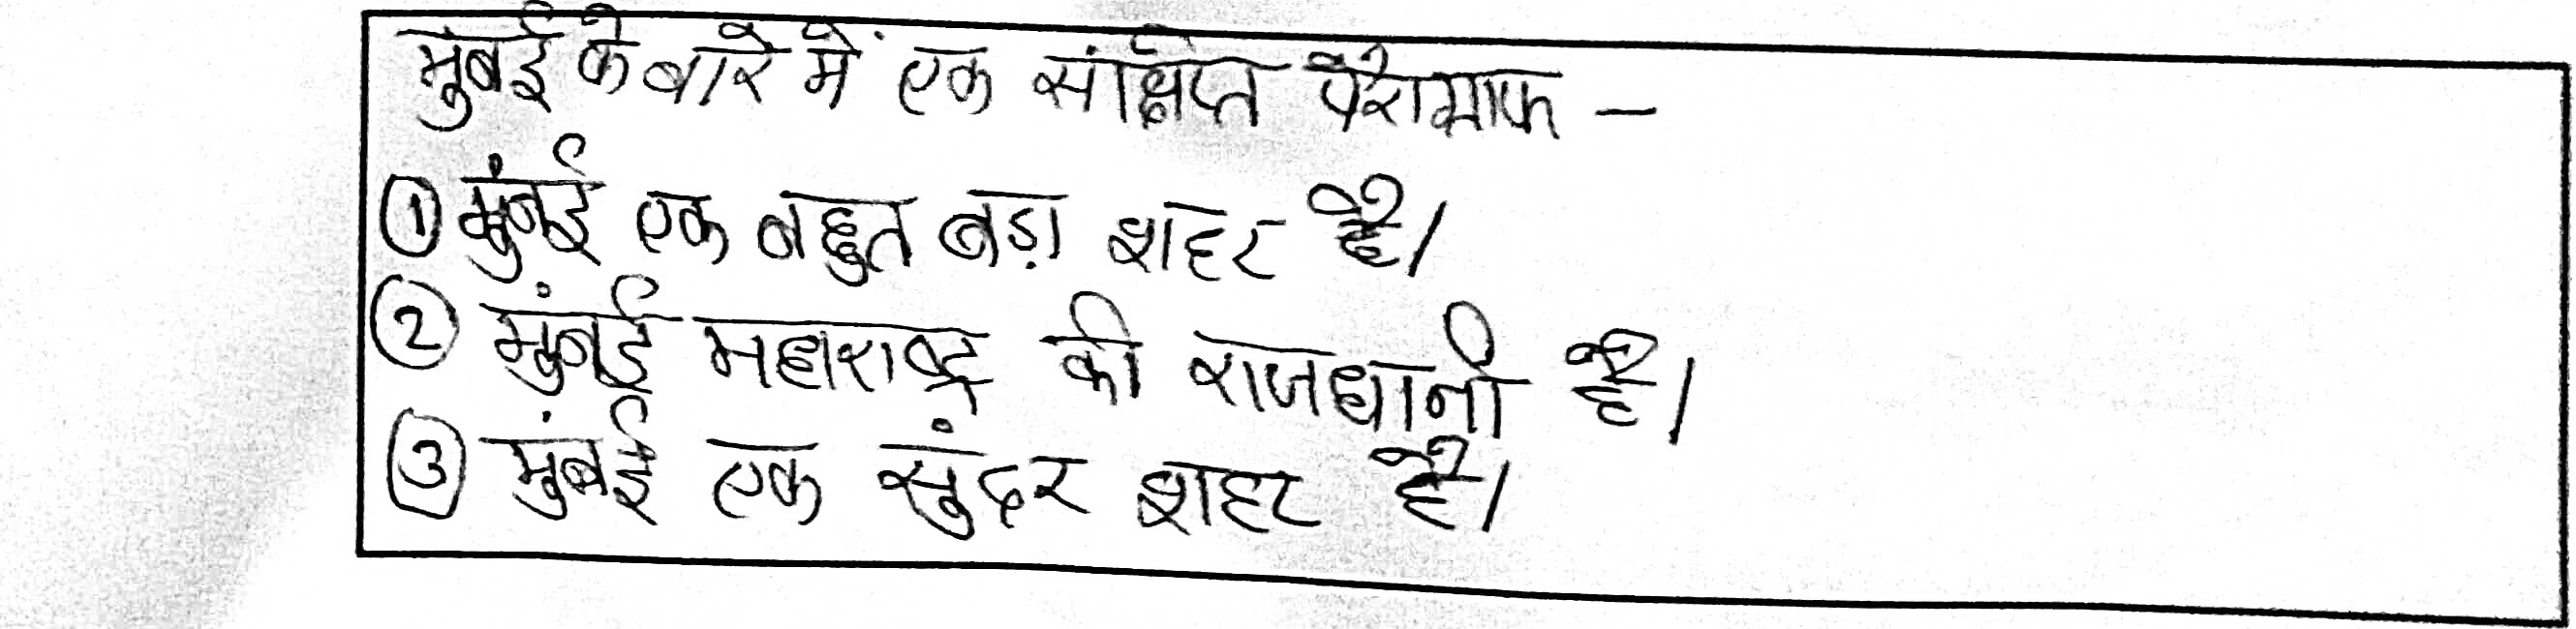 मुंबई के बारे में एक संक्षिप्त पैराग्राफ –
① मुंबई एक बहुत बड़ा शहर है।
② मुंबई महाराष्ट्र की राजधानी है।
③ मुंबई एक सुंदर शहर है।